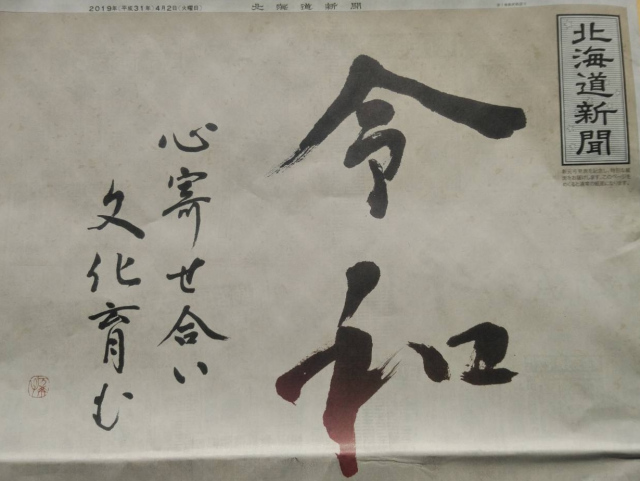 2019年(平成31年)4月2日(火曜日)
北海道新聞
北海道新聞
令和
心寄せ合い
文化育む